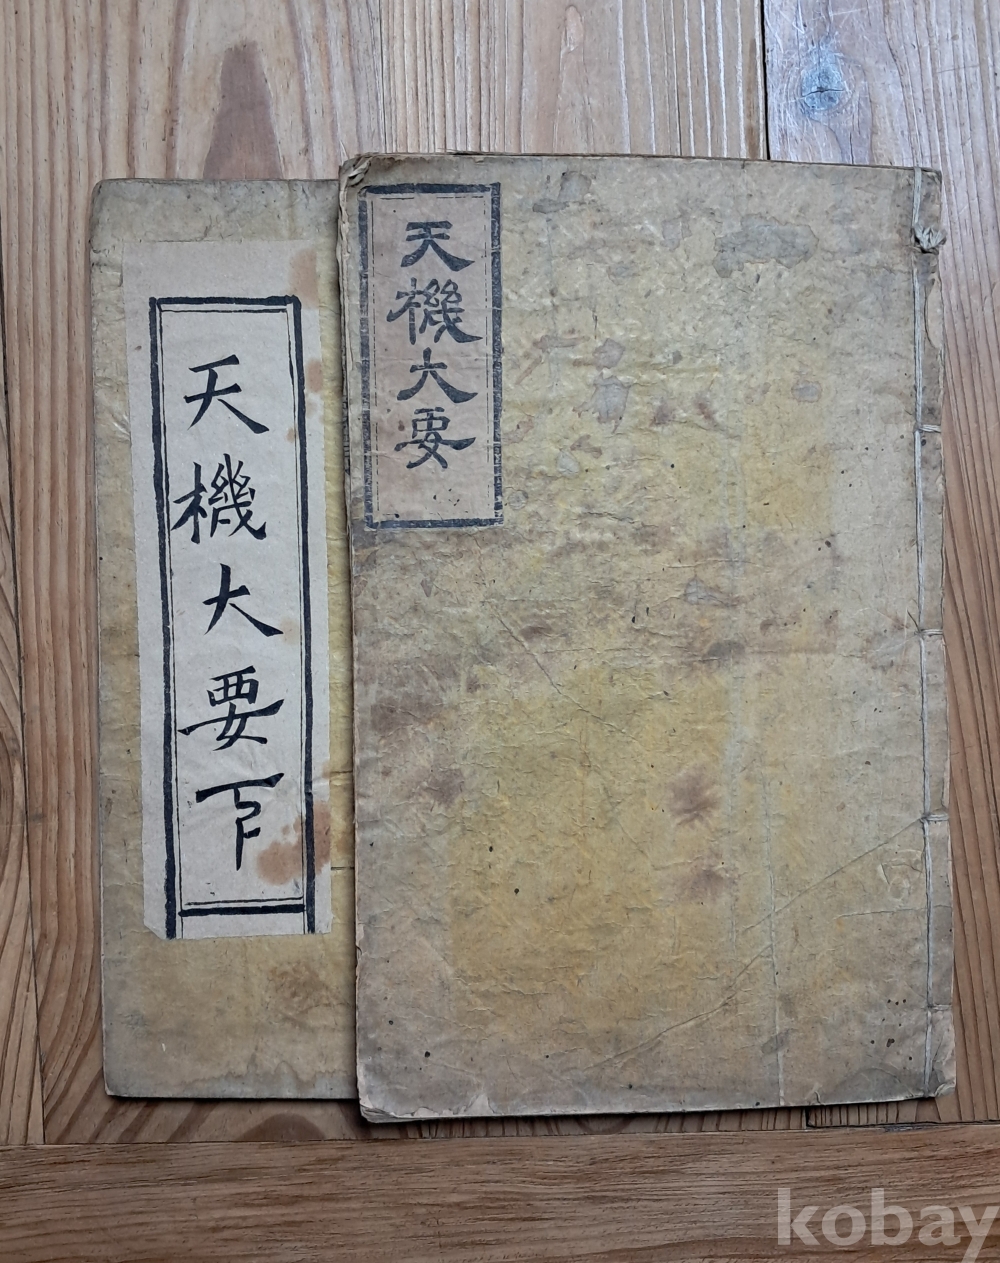 天機大要
天機大要下
kobay